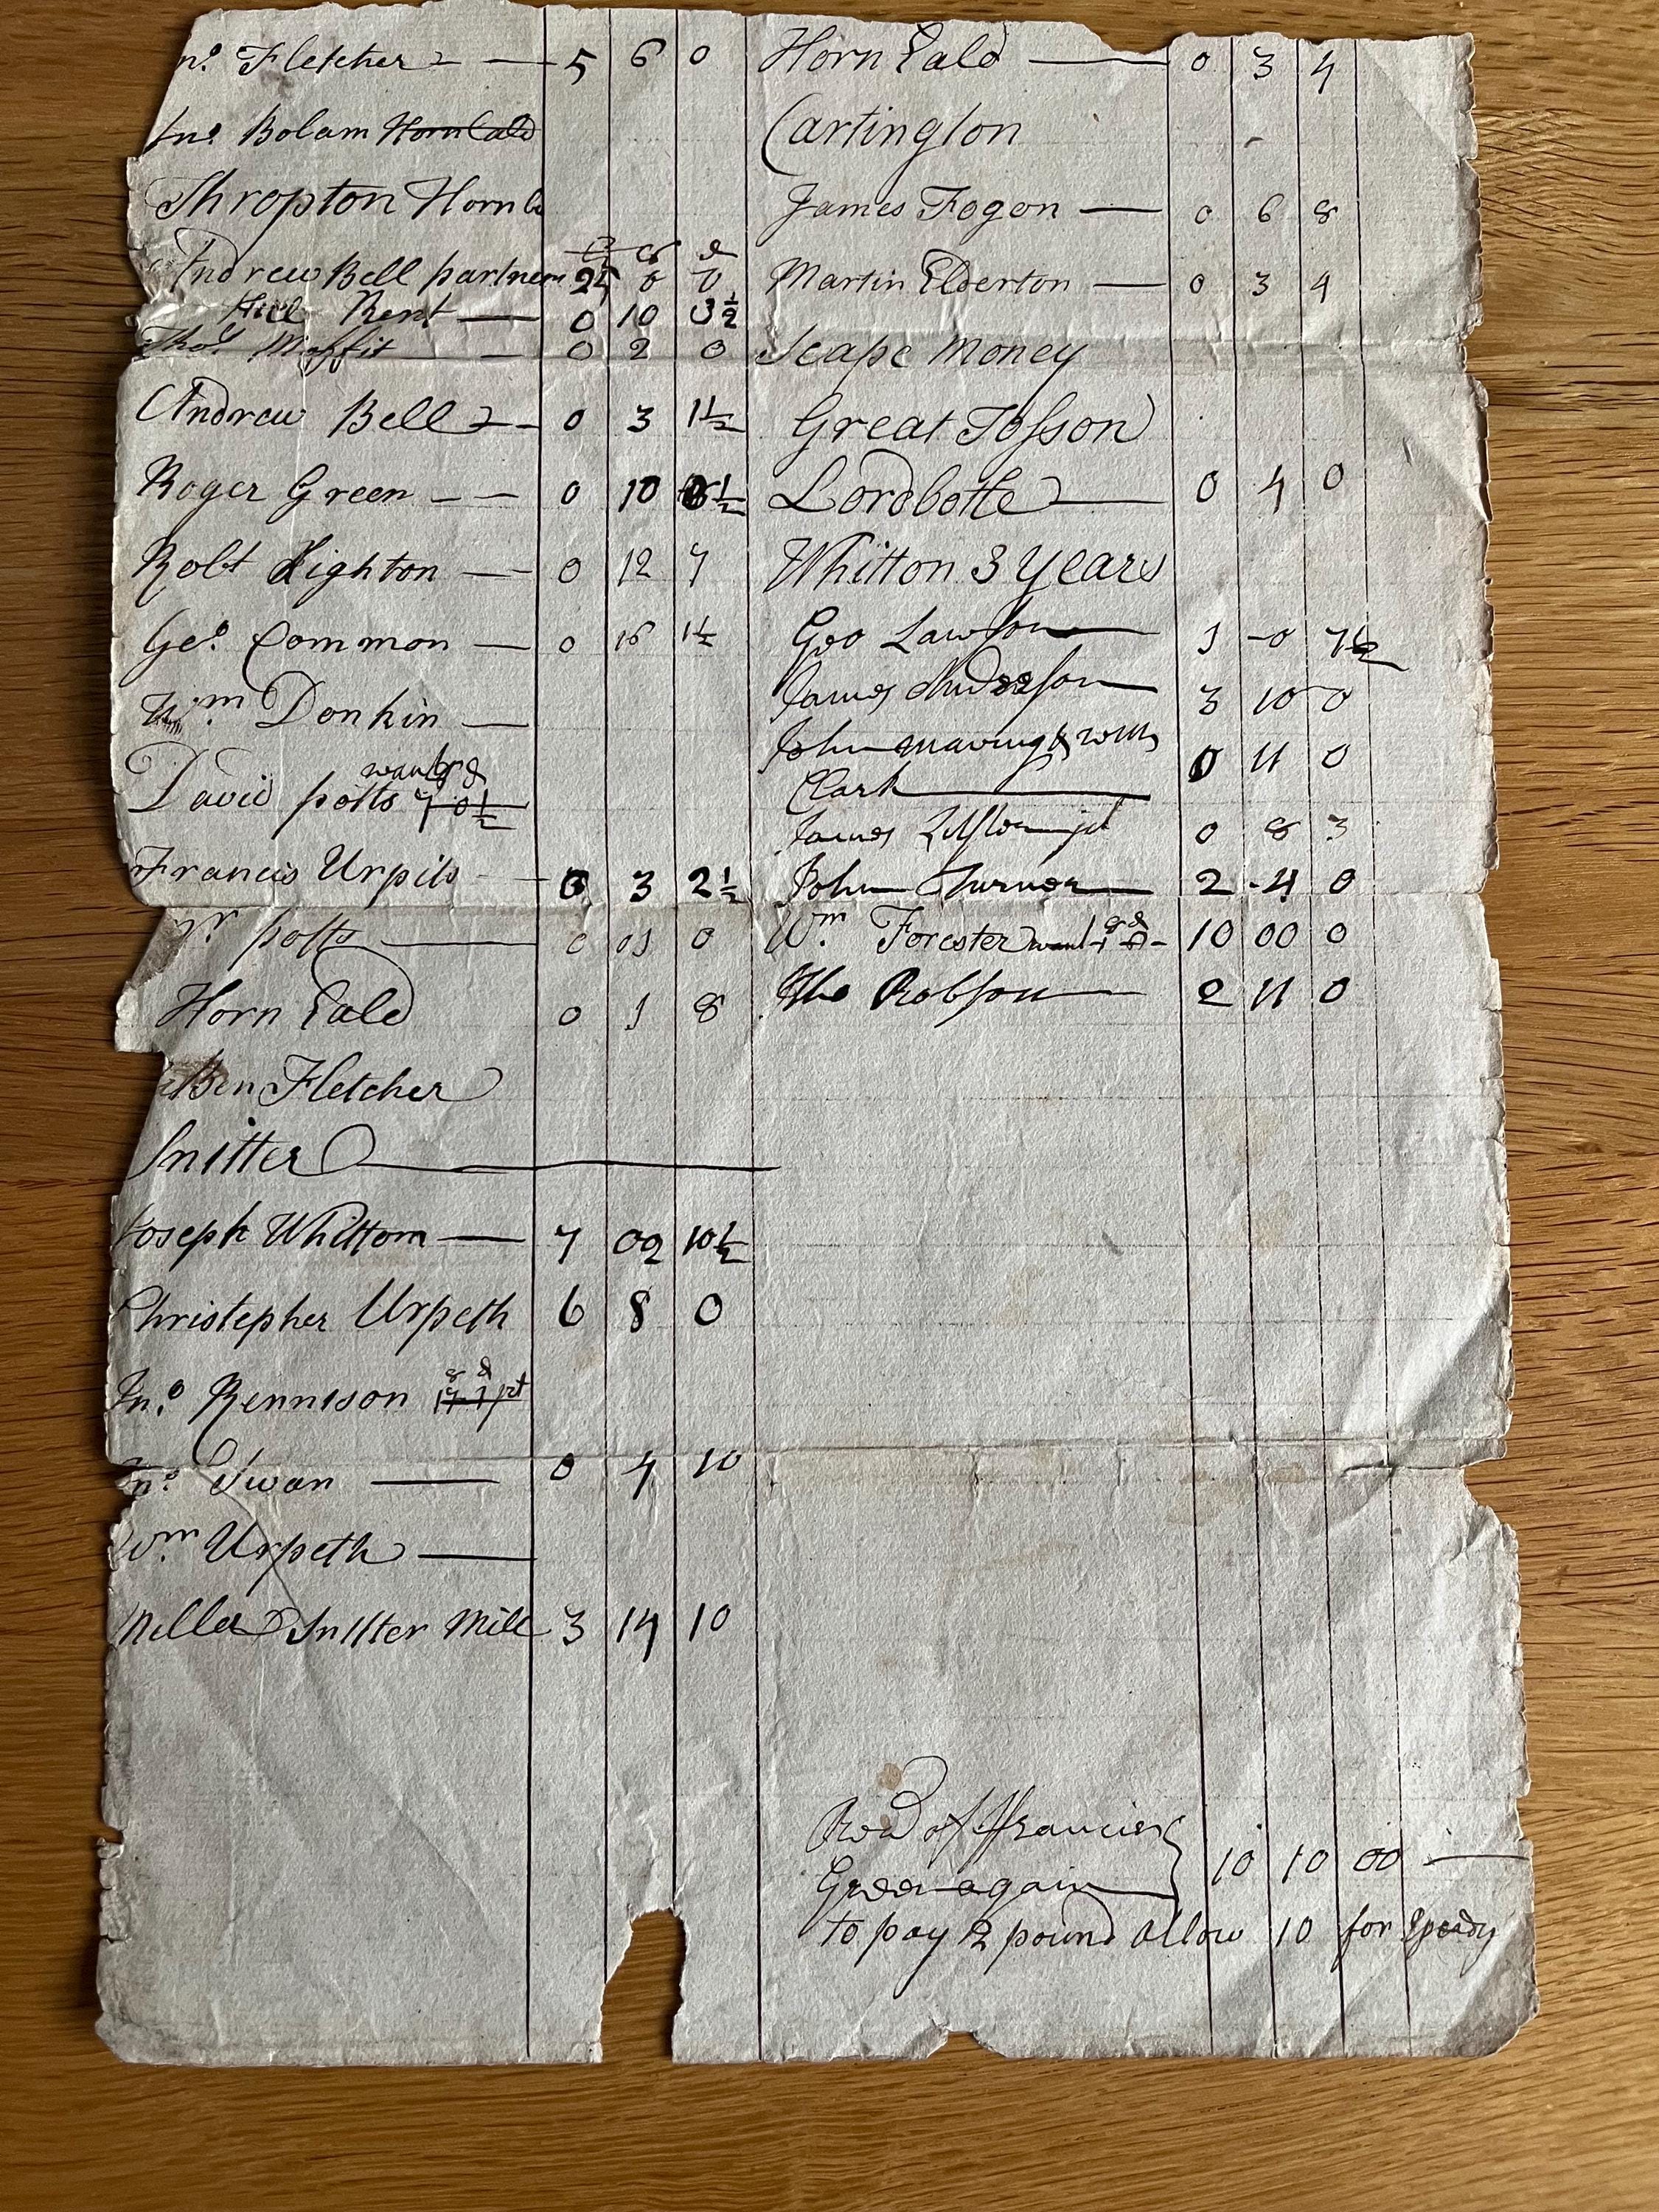 Jno. Fletcher 5 6 0
Jno. Bolam Horn Eald
Thropton Horn
£ s d
Andrew Bell partner 25 0 0
Rent 0 10 3½
Thos. Moffit 0 2 0
Andrew Bell 0 3 1½
Roger Green 0 10
Robt Lighton 0 12 7
Geo. Common 0 16 1½
Wm Donkin
s d
David potts 7 0½
Francis Urpith 0 3 2½
potts 0 01 0
Horn Eald 0 1 8
Ben Fletcher
Snitter
Joseph Whittom 7 02 10½
Christepher Urpeth 6 8 0
s d
Jno. Rennison
Jno. Swan 0 4 10
Wm Urpeth
Miller Snitter Mill 3 14 10
Horn Eald 0 3 4
Cartington
James Fogon 0 6 8
Martin Elderton 0 3 4
Scape Money
Great Tosson
Lordbotle 0 4 0
Whitton 3 Years
Geo Lawson 1 0 7½
James Anderson 3 10 0
John
Clark 0 11 0
James 0 8 3
John Turner 2 4 0
Wm Forester 10 00 0
Tho Robson 2 11 0
Recd of Francies
Green again 10 10 00
to pay 2 pound allow 10 for